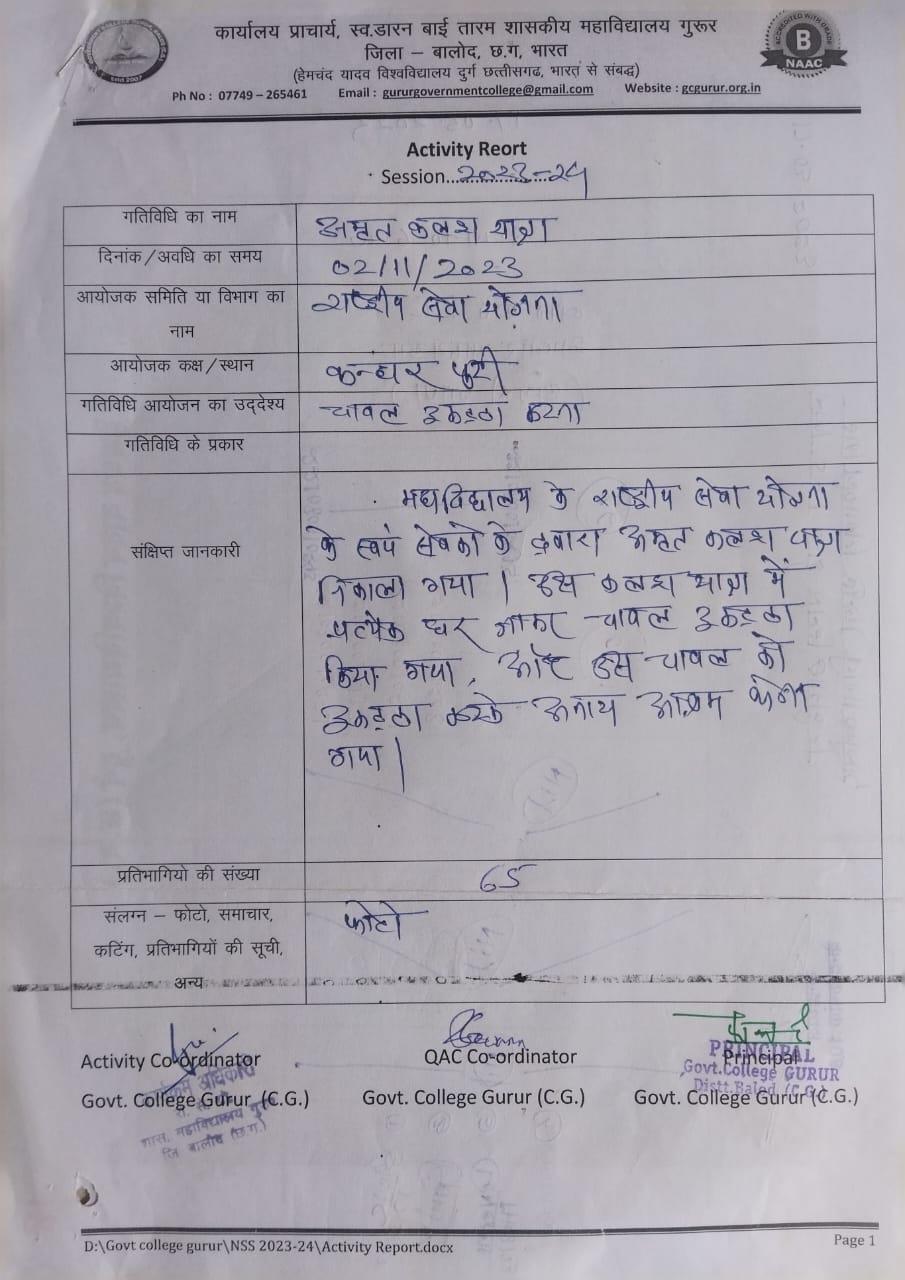 कार्यालय प्राचार्य, स्व.डारन बाई तारम शासकीय महाविद्यालय गुरूर
जिला – बालोद, छ.ग, भारत
(हेमचंद यादव विश्वविद्यालय दुर्ग छत्तीसगढ, भारत से संबद्ध)
Ph No : 07749 – 265461 Email : gururgovernmentcollege@gmail.com Website : gcgurur.org.in
ACCREDITED WITH GRADE
B
NAAC
Estd 2007
Activity Reort
Session...2023-24
गतिविधि का नाम अमृत कलश यात्रा
दिनांक/अवधि का समय 02/11/2023
आयोजक समिति या विभाग का राष्ट्रीय सेवा योजना
नाम
आयोजक कक्ष/स्थान कन्हार पुरी
गतिविधि आयोजन का उद्देश्य चावल इकट्ठा करना
गतिविधि के प्रकार
संक्षिप्त जानकारी
महाविद्यालय के राष्ट्रीय सेवा योजना
के स्वयं सेवको के द्वारा अमृत कलश यात्रा
निकाला गया | इस कलश यात्रा में
प्रत्येक घर जाकर चावल इकट्ठा
किया गया, और इस चावल को
इकट्ठा करके अनाथ आश्रम भेजा
गया |
प्रतिभागियो की संख्या 65
संलग्न – फोटो, समाचार, फोटो
कटिंग, प्रतिभागियों की सूची,
अन्य
Activity Co-ordinator QAC Co-ordinator Principal
Govt. College Gurur (C.G.) Govt. College Gurur (C.G.) Govt. College Gurur (C.G.)
PRINCIPAL
Govt.College GURUR
Distt.Balod (C.G.)
कार्यक्रम अधिकारी
शास. महाविद्यालय गुरूर
जि बालोद (छ.ग.)
D:\Govt college gurur\NSS 2023-24\Activity Report.docx Page 1